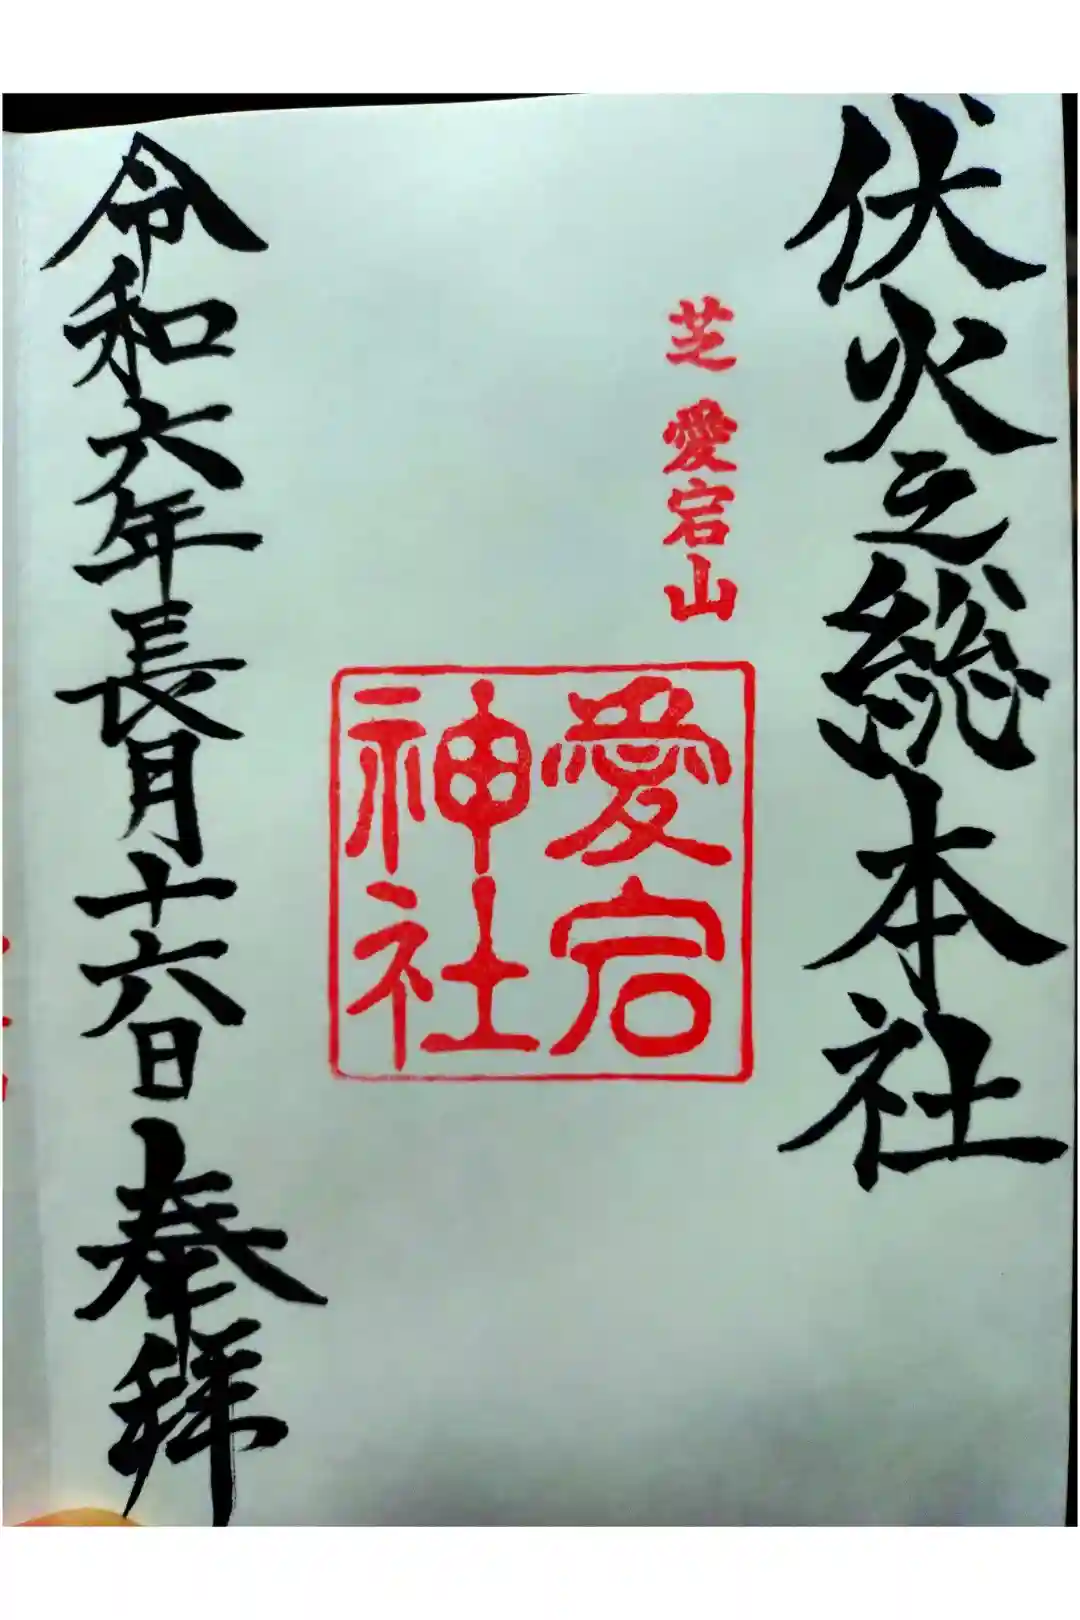 伏火之總本社
芝 愛宕山
愛宕
神社
令和六年長月十六日 奉拜